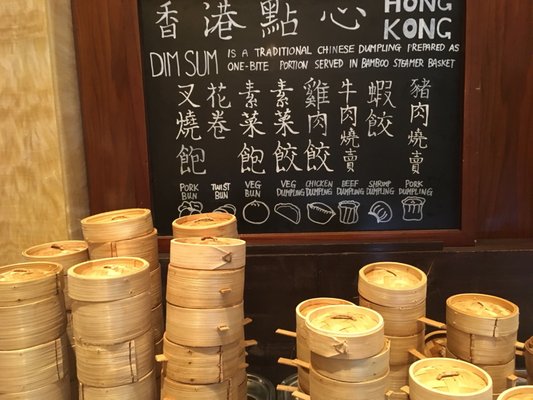 香港點心
HONG
KONG
DIM SUM IS A TRADITIONAL CHINESE DUMPLING PREPARED AS
ONE-BITE PORTION SERVED IN BAMBOO STEAMER BASKET
叉燒飽
花卷
素菜飽
素菜餃
雞肉餃
牛肉燒賣
蝦餃
豬肉燒賣
PORK
BUN
TWIST
BUN
VEG
BUN
VEG
DUMPLING
CHICKEN
DUMPLING
BEEF
DUMPLING
SHRIMP
DUMPLING
PORK
DUMPLING